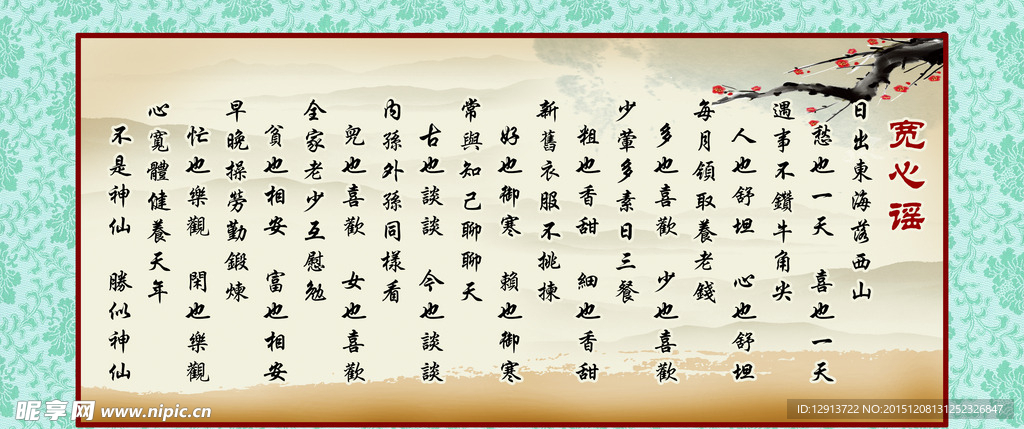 宽心谣
日出東海落西山
愁也一天 喜也一天
遇事不鑽牛角尖
人也舒坦 心也舒坦
每月領取養老錢
多也喜歡 少也喜歡
少葷多素日三餐
粗也香甜 細也香甜
新舊衣服不挑揀
好也御寒 賴也御寒
常與知己聊聊天
古也談談 今也談談
內孫外孫同樣看
兒也喜歡 女也喜歡
全家老少互慰勉
貧也相安 富也相安
早晚操勞勤鍛煉
忙也樂觀 閑也樂觀
心寬體健養天年
不是神仙 勝似神仙
昵享网 www.nipic.cn
ID:12913722 NO:20151208131252326847